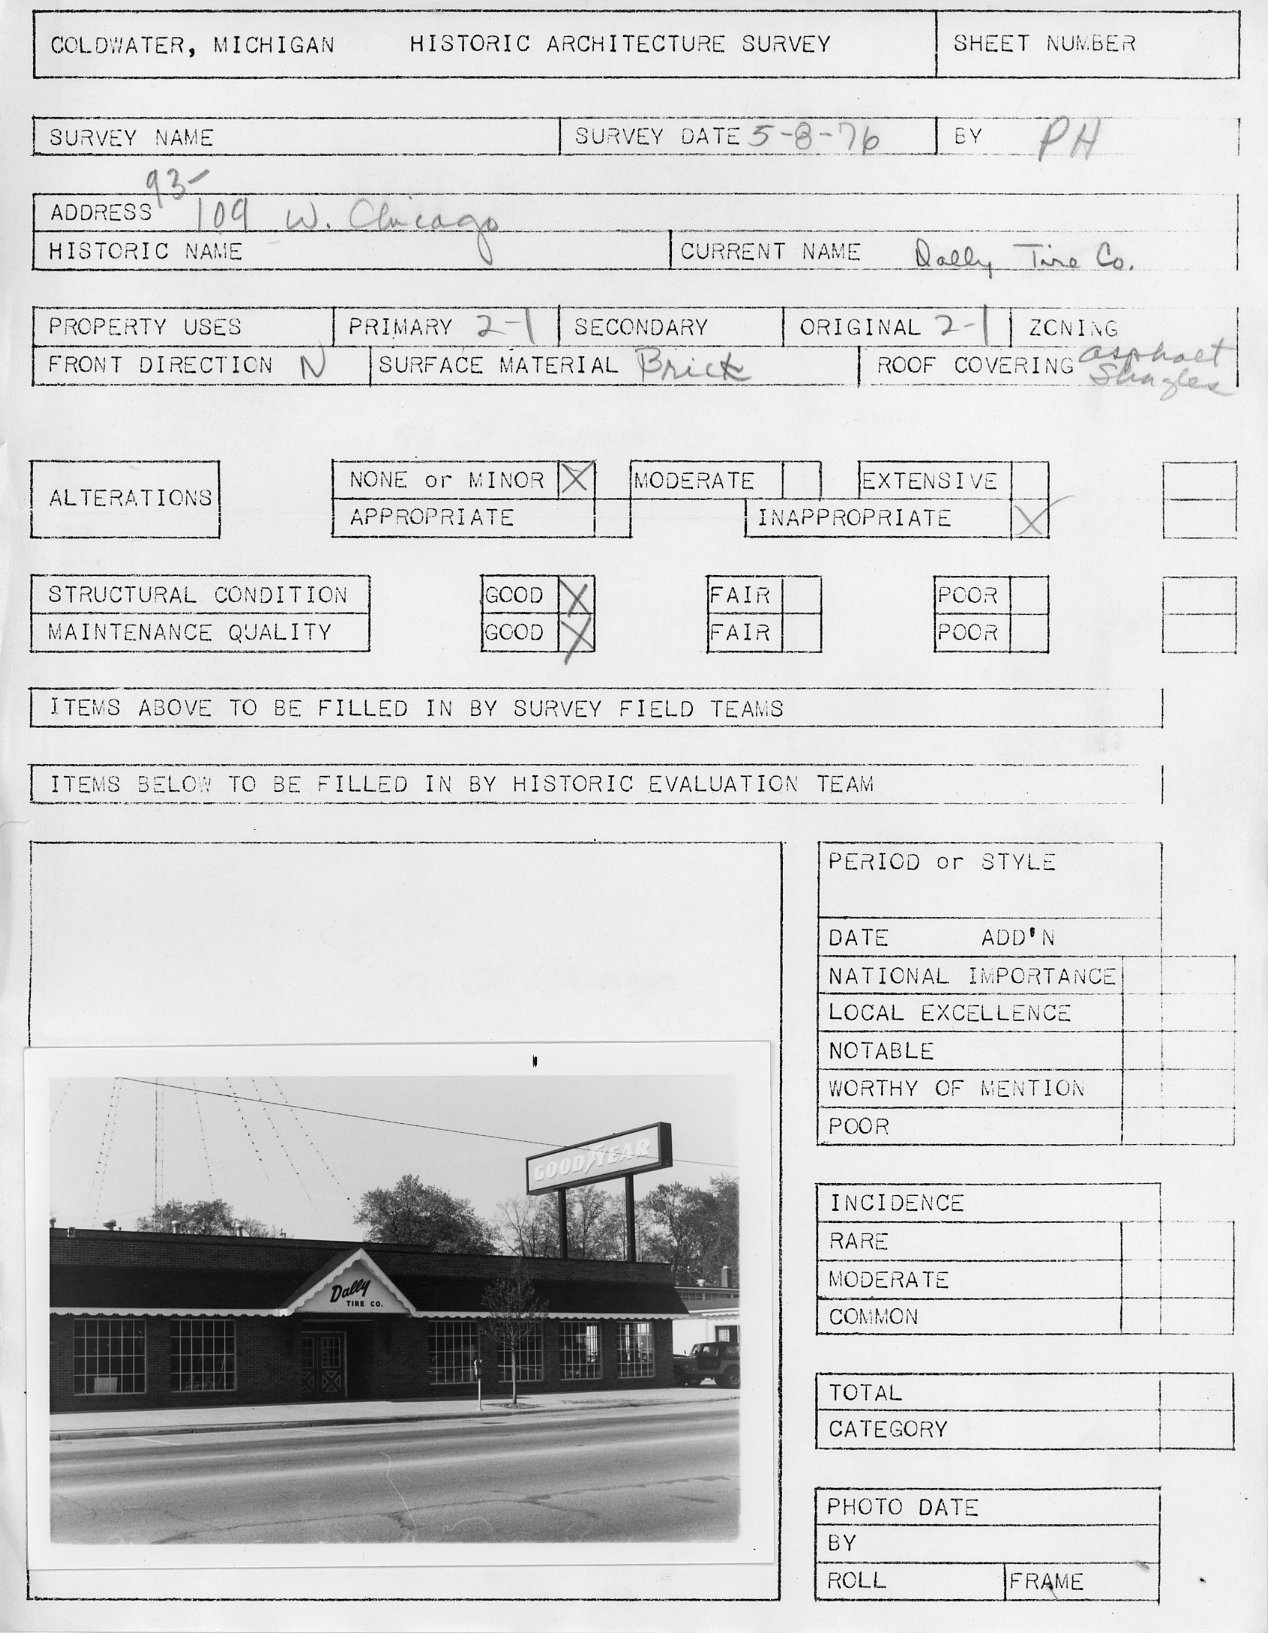 COLDWATER, MICHIGAN HISTORIC ARCHITECTURE SURVEY SHEET NUMBER
SURVEY NAME SURVEY DATE 5-8-76 BY PH
93-
ADDRESS 109 W. Chicago
HISTORIC NAME CURRENT NAME Dally Tire Co.
PROPERTY USES PRIMARY 2-1 SECONDARY ORIGINAL 2-1 ZONING
FRONT DIRECTION N SURFACE MATERIAL Brick ROOF COVERING asphalt
Shingles
ALTERATIONS NONE or MINOR X MODERATE EXTENSIVE
APPROPRIATE INAPPROPRIATE X
STRUCTURAL CONDITION GOOD X FAIR POOR
MAINTENANCE QUALITY GOOD X FAIR POOR
ITEMS ABOVE TO BE FILLED IN BY SURVEY FIELD TEAMS
ITEMS BELOW TO BE FILLED IN BY HISTORIC EVALUATION TEAM
PERIOD or STYLE
DATE ADD'N
NATIONAL IMPORTANCE
LOCAL EXCELLENCE
NOTABLE
WORTHY OF MENTION
POOR
INCIDENCE
RARE
MODERATE
COMMON
TOTAL
CATEGORY
PHOTO DATE
BY
ROLL FRAME
GOODYEAR
Dally
TIRE CO.